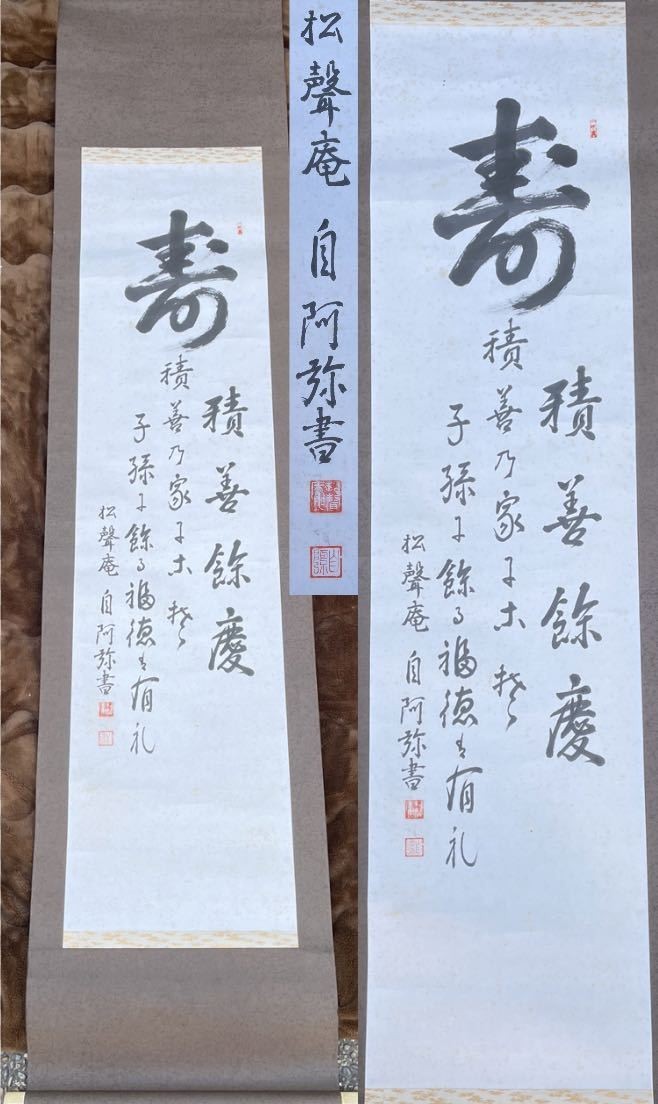 寿
積善餘慶
積善乃家にこそ
子孫に餘る福徳は有礼
松聲庵 自阿弥書
松聲庵 自阿弥書
寿
積善餘慶
積善乃家にこそ
子孫に餘る福徳は有礼
松聲庵 自阿弥書